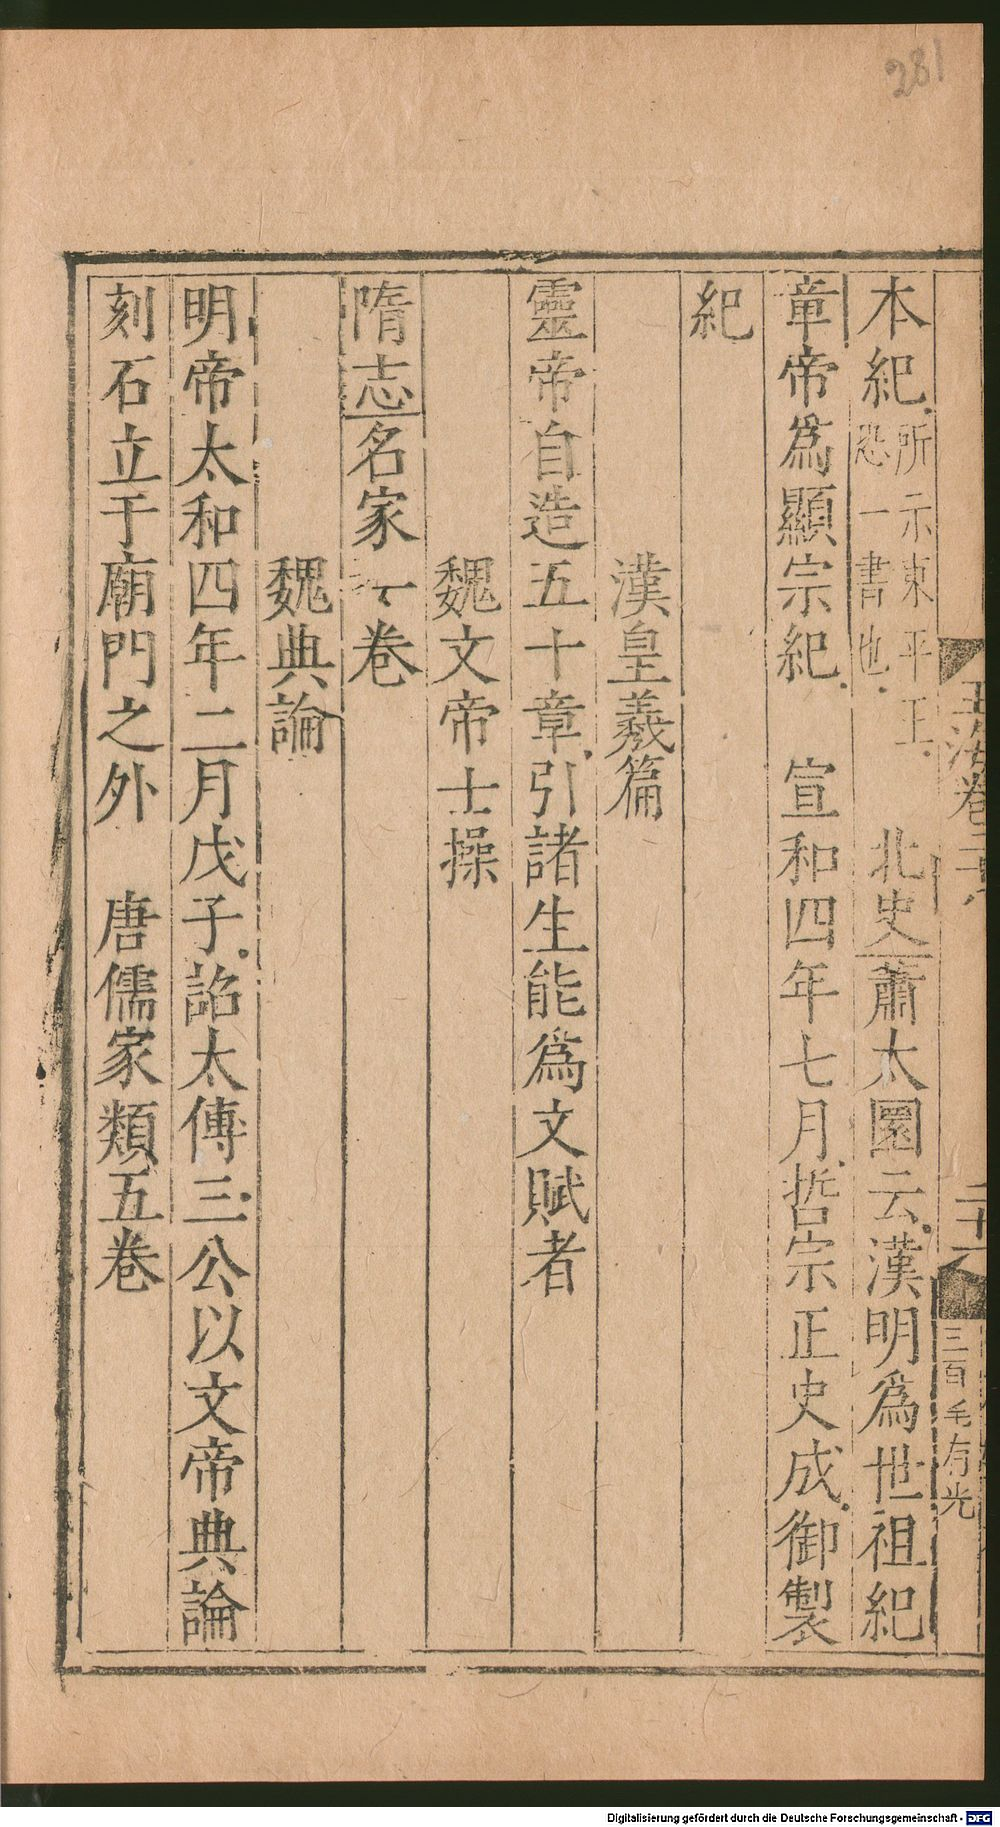 281
玉海卷二十八
三百毛有光
本紀所示東平王恐一書也 北史蕭大圜云漢明為世祖紀
章帝為顯宗紀 宣和四年七月哲宗正史成御製
紀
漢皇羲篇
靈帝自造五十章引諸生能為文賦者
魏文帝士操
隋志名家一卷
魏典論
明帝太和四年二月戊子詔太傅三公以文帝典論
刻石立于廟門之外 唐儒家類五卷
Digitalisierung gefördert durch die Deutsche Forschungsgemeinschaft - DFG